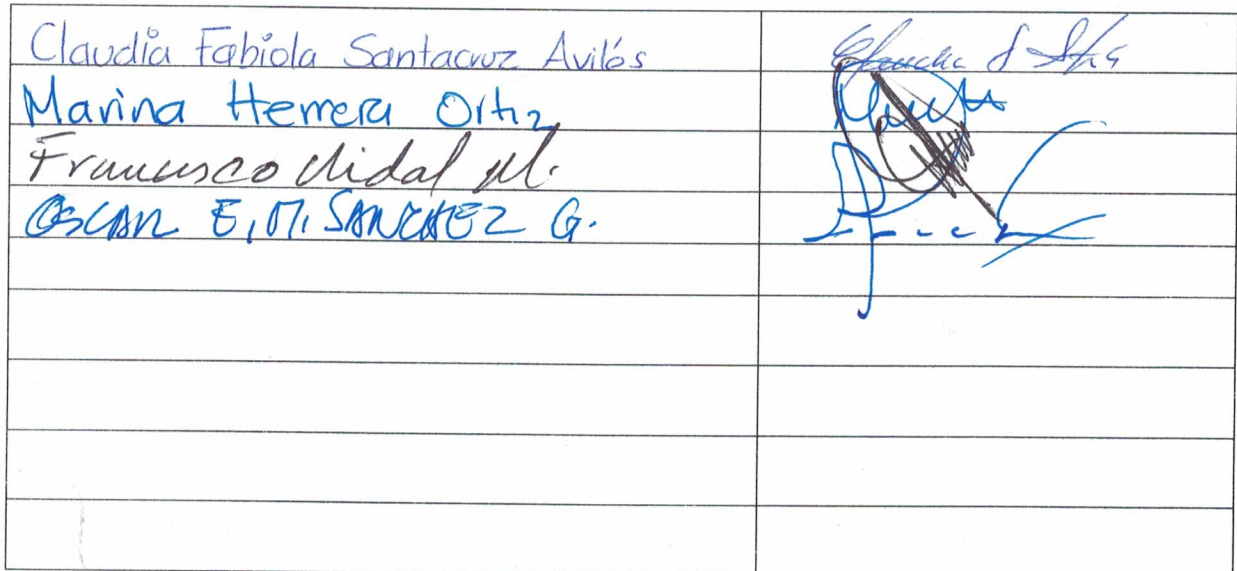 Claudia Fabiola Santacruz Avilés
Marina Herrera Ortiz
Francisco Vidal M.
OSCAR E. M. SANCHEZ G.